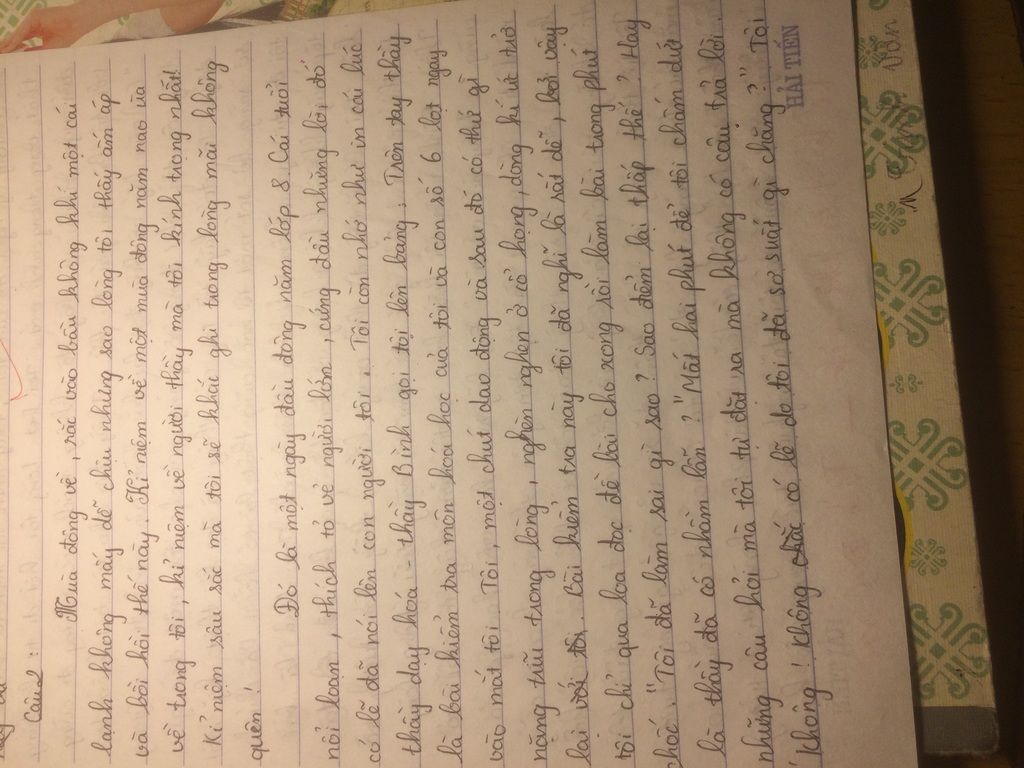 Câu 2 :
Mùa đông về, rắc vào bầu không khí một cái
lạnh không mấy dễ chịu nhưng sao lòng tôi thấy ấm áp
và bồi hồi thế này. Kỉ niệm về một mùa đông năm nao ùa
về trong tôi, kỉ niệm về người thầy mà tôi kính trọng nhất!
Kỉ niệm sâu sắc mà tôi sẽ khắc ghi trong lòng mãi không
quên!
Đó là một ngày đầu đông năm lớp 8. Cái tuổi
nổi loạn, thích tỏ vẻ người lớn, cứng đầu nhưng lời đó
có lẽ đã nói lên con người tôi. Tôi còn nhớ như in cái lúc
thầy dạy hóa - thầy Bình gọi tôi lên bảng. Trên tay thầy
là bài kiểm tra môn hoá học của tôi và con số 6 lọt ngay
vào mắt tôi. Tôi, một chút dao động và sau đó có thứ gì
nặng trĩu trong lòng, nghèn nghẹn ở cổ họng, dòng kí ức trở
lại với tôi. Bài kiểm tra này tôi đã nghĩ là rất dễ, bởi vậy
tôi chỉ qua loa đọc đề bài cho xong rồi làm bài trong phút
chốc. "Tôi đã làm sai gì sao? Sao điểm lại thấp thế? Hay
là thầy đã có nhầm lẫn?" Mất hai phút để tôi chấm dứt
những câu hỏi mà tôi tự đặt ra mà không có câu trả lời.
"Không! Không chắc có lẽ do tôi đã sơ suất gì chăng?" Tôi
HẢI TIẾN
Văn